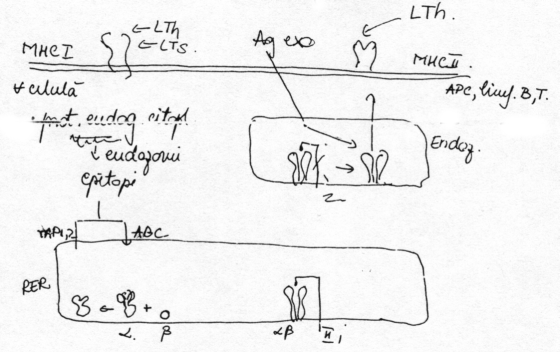 LTh
LTS.
LTh.
MHC I
Ag exo
MHC II
∀ celulă
APC, limf. B, T.
prot. endog. citopl
endozomi
epitopi
Endoz.
TAP1,2
ABC
RER
α.
+
β
αβ
II i